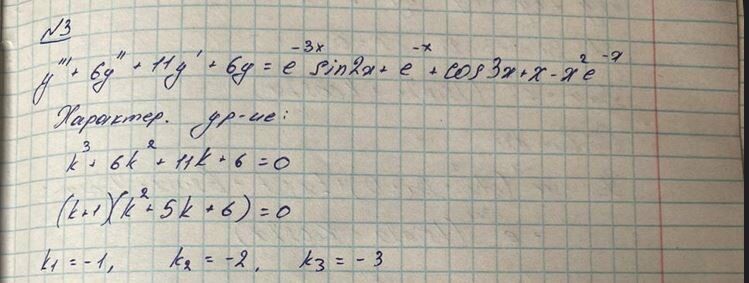 №3
y''' + 6y'' + 11y' + 6y = e^{-3x} sin2x + e^{-x} + cos3x + x - x^2 e^{-x}
Характер. ур-ие:
k^3 + 6k^2 + 11k + 6 = 0
(k+1)(k^2 + 5k + 6) = 0
k_1 = -1, k_2 = -2, k_3 = -3